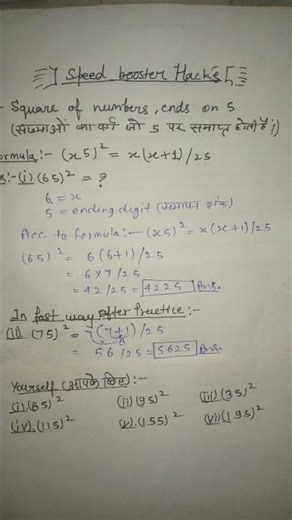 Speed booster Hacks
- Square of numbers, ends on 5
(संख्याओं का वर्ग जो 5 पर समाप्त होती हैं।)
ormula:- (x5)² = x(x+1)/25
(i) (65)² = ?
6 = x
5 = ending digit (समापन अंक)
Acc. to formula:- (x5)² = x(x+1)/25
(65)² = 6(6+1)/25
= 6×7/25
= 42/25 = 4225 Ans.
In fast way after Practice:-
(ii) (75)² = 7(7+1)/25
= 56/25 = 5625 Ans.
Yourself (आपके लिए):-
(i) (85)² (ii) (95)² (iii) (35)²
(iv) (115)² (v) (155)² (vi) (195)²